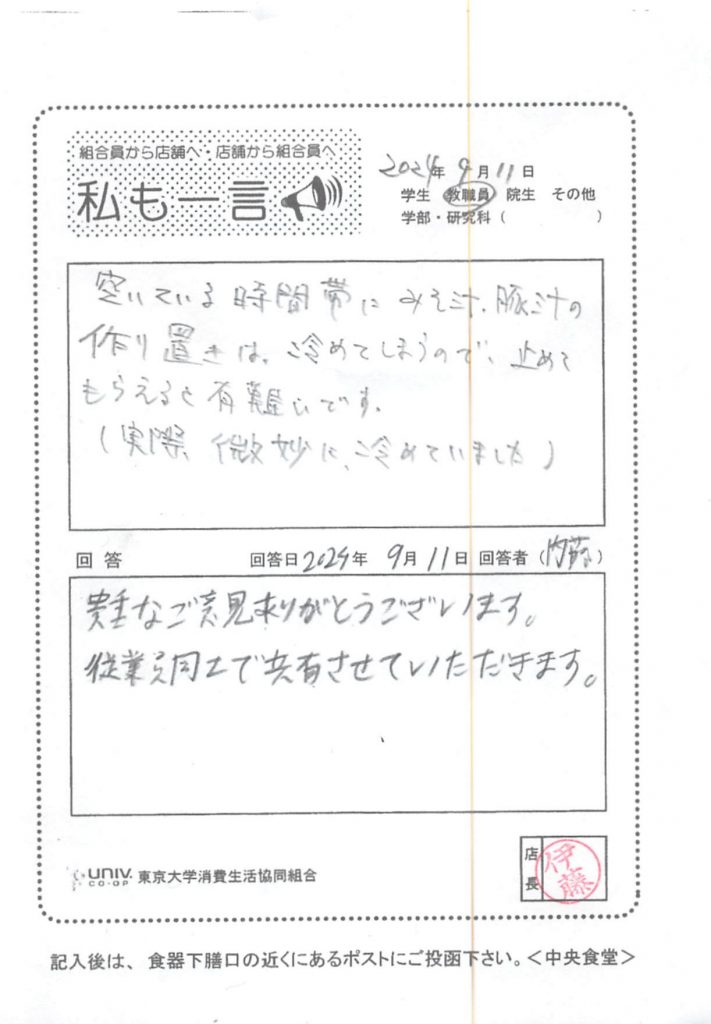 組合員から店舗へ・店舗から組合員へ
私も一言
2024年 9月 11日
学生 教職員 院生 その他
学部・研究科（ ）
空いている時間帯にみそ汁、豚汁の
作り置きは、冷めてしまうので、止めて
もらえると有難いです。
(実際、微妙に、冷めていました)
回答 回答日 2024年 9月 11日 回答者（内藤）
貴重なご意見ありがとうございます。
従業員同士で共有させていただきます。
UNIV. CO-OP 東京大学消費生活協同組合
店長 伊藤
記入後は、食器下膳口の近くにあるポストにご投函下さい。＜中央食堂＞